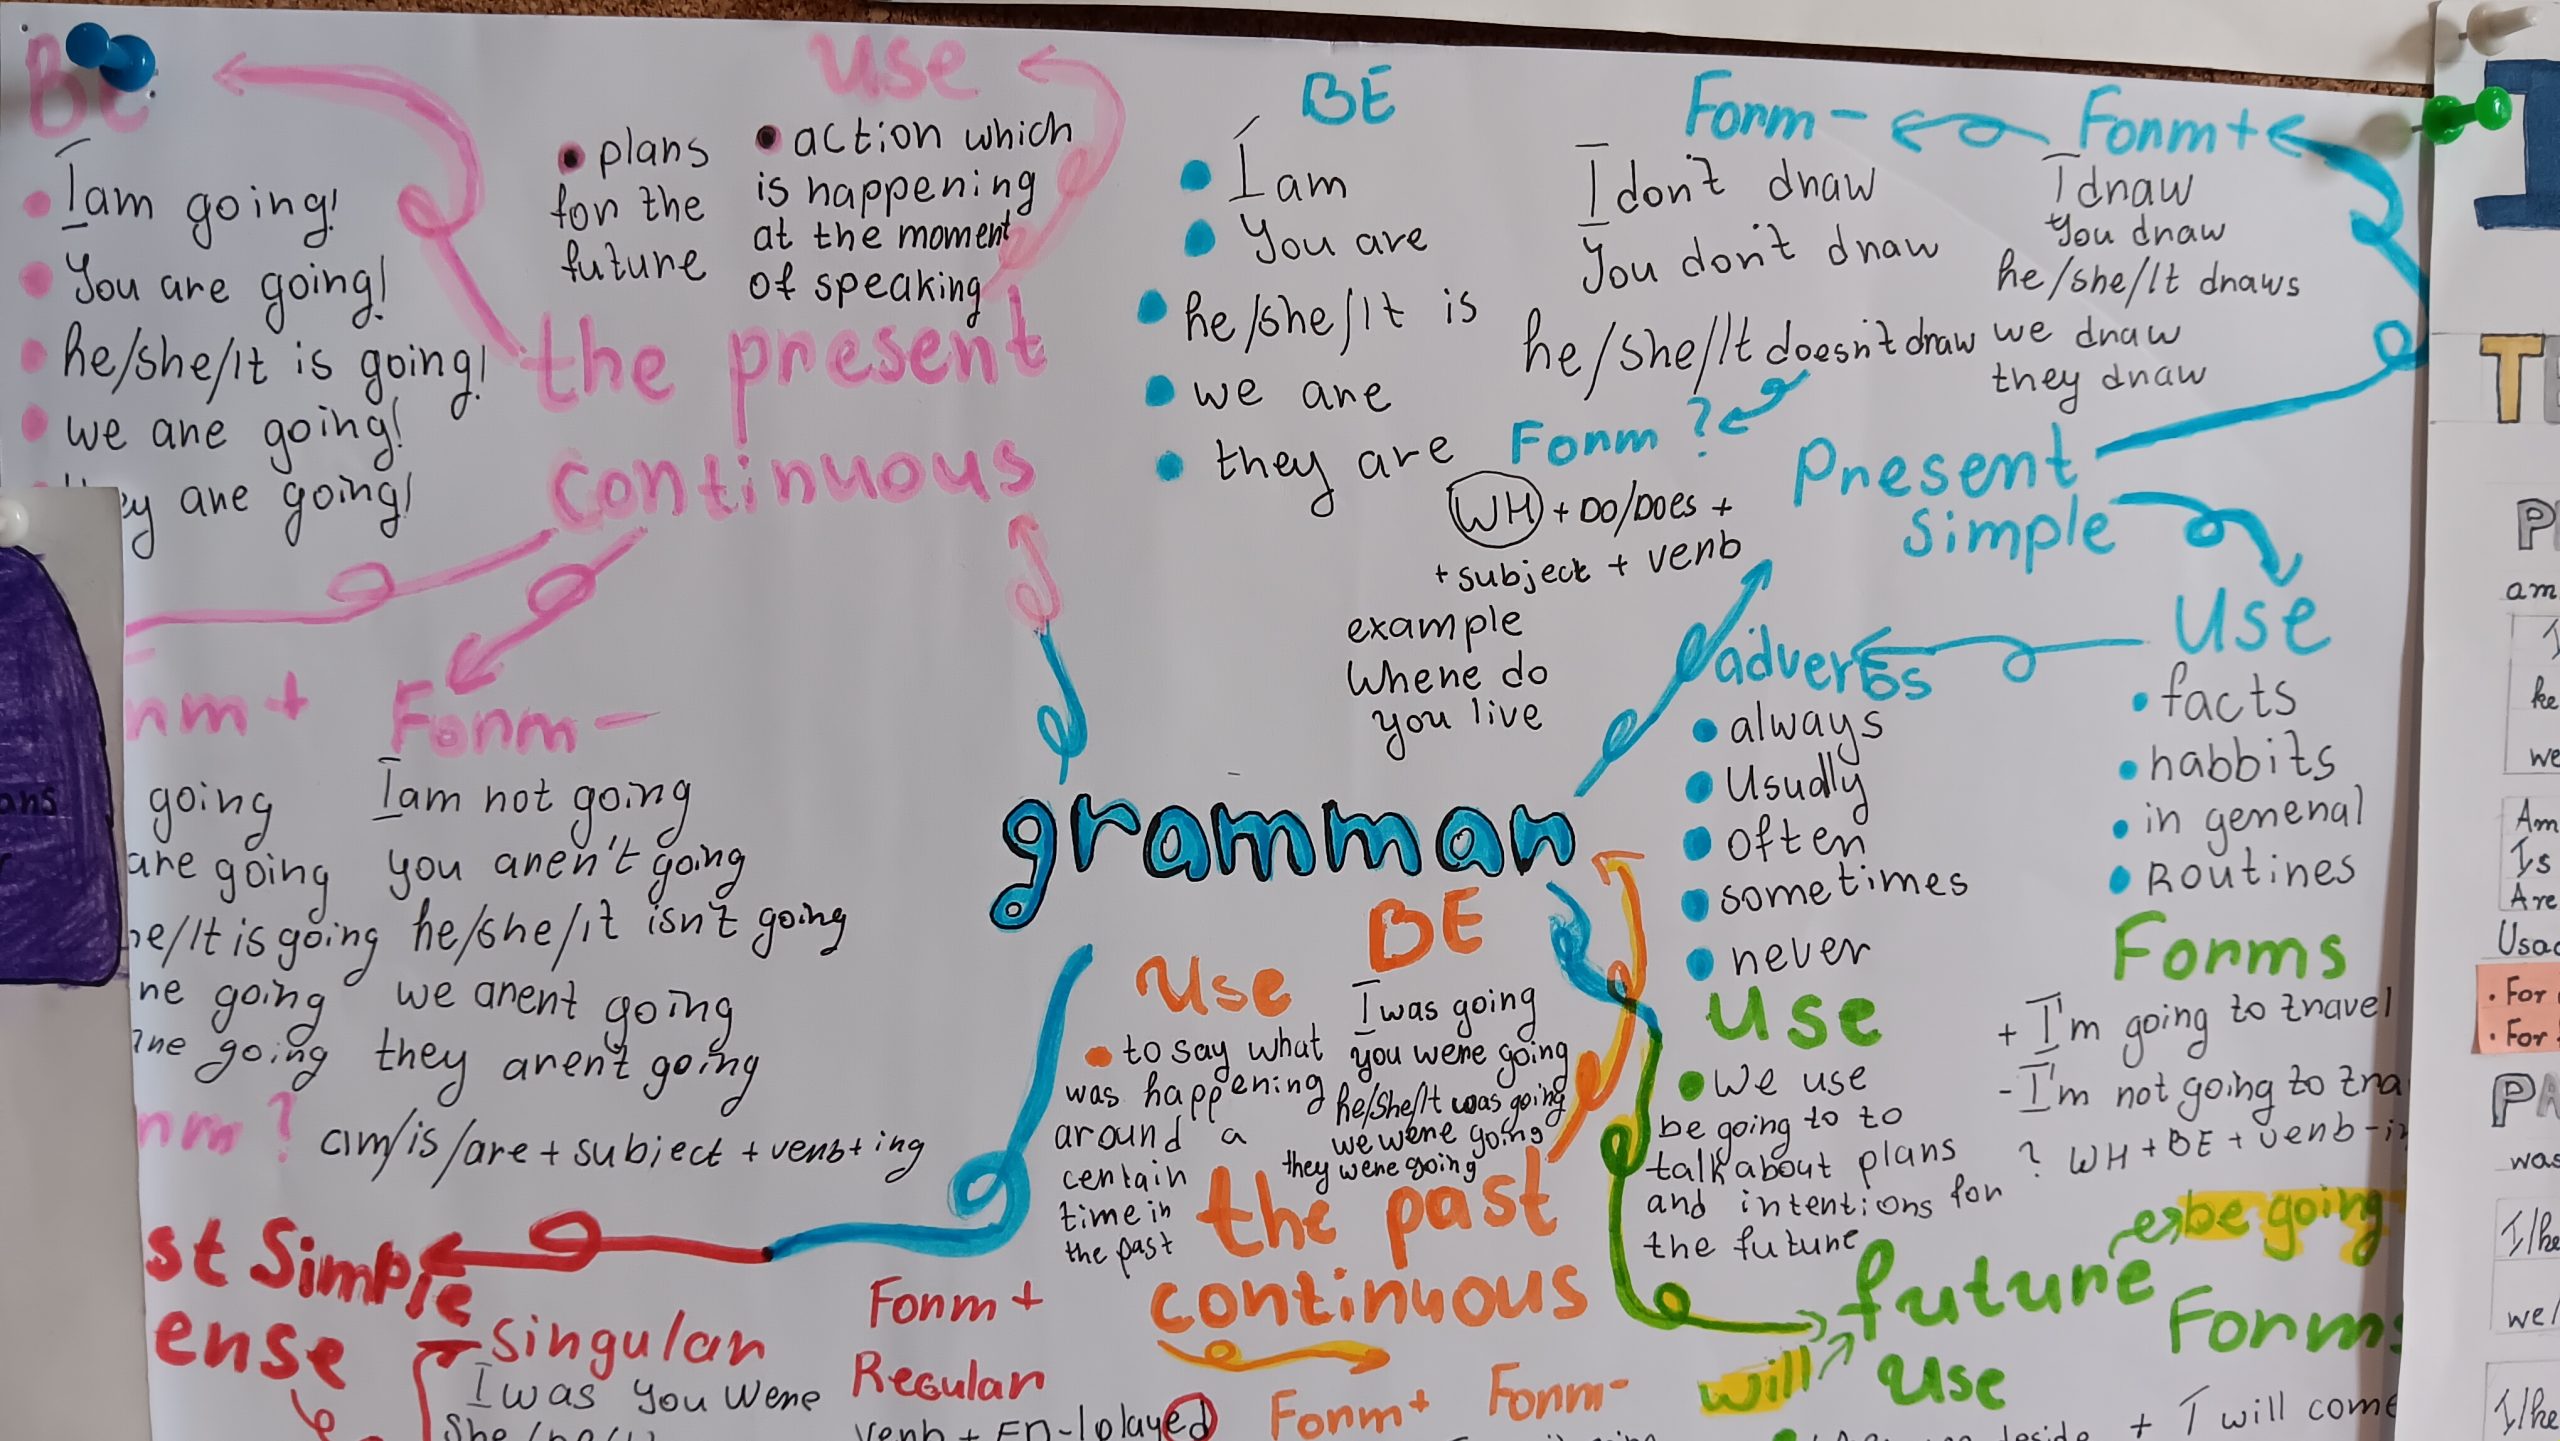 BE
I am going!
You are going!
he/she/It is going!
we are going!
ey are going!
use
• plans
for the
future
• action which
is happening
at the moment
of speaking
the present
continuous
BE
I am
You are
he/she/It is
we are
they are
Form -
I don't draw
You don't draw
he/she/It doesn't draw
Form +
I draw
You draw
he/she/It draws
we draw
they draw
Form ?
WH + DO/DOES +
+ subject + verb
example
Where do
you live
Present
simple
Use
• facts
• habbits
• in general
• Routines
adverbs
• always
• Usually
• often
• sometimes
• never
rm +
going
are going
he/It is going
re going
are going
Form -
I am not going
you aren't going
he/she/it isn't going
we arent going
they aren't going
rm ?
am/is/are + subject + verb + ing
grammar
Use
• to say what
was happening
around a
certain
time in
the past
BE
I was going
you were going
he/she/It was going
we were going
they were going
the past
continuous
Form +
Form -
Use
• We use
be going to to
talk about plans
and intentions for
the future
Forms
+ I'm going to travel
- I'm not going to tra
? WH + BE + verb-i
future
be going
will
Use
Forms
+ I will come
st Simple
ense
Singular
I was You were
Form +
Regular
verb + ED - played
I
TE
P
am
he
we
Am
Is
Are
• For
• For
PA
was
I/he
we/
I/he